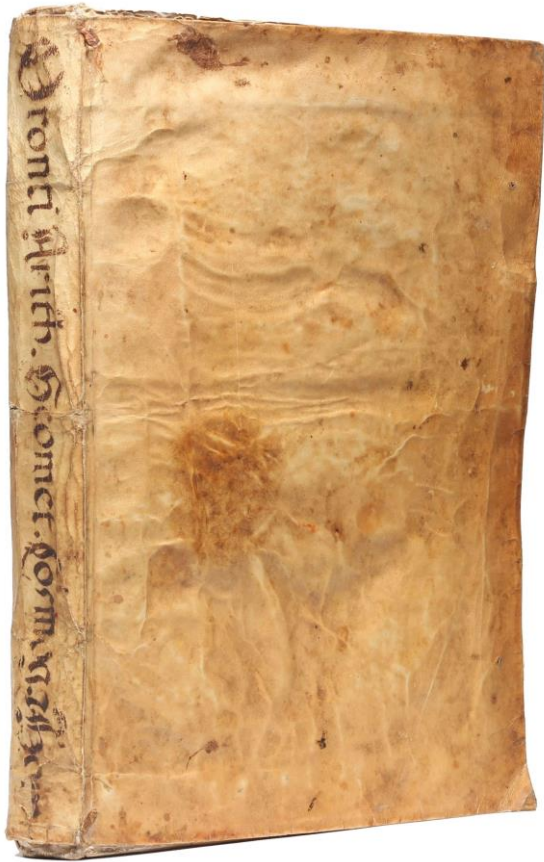 Oronti Arith. Geomet. Cosm